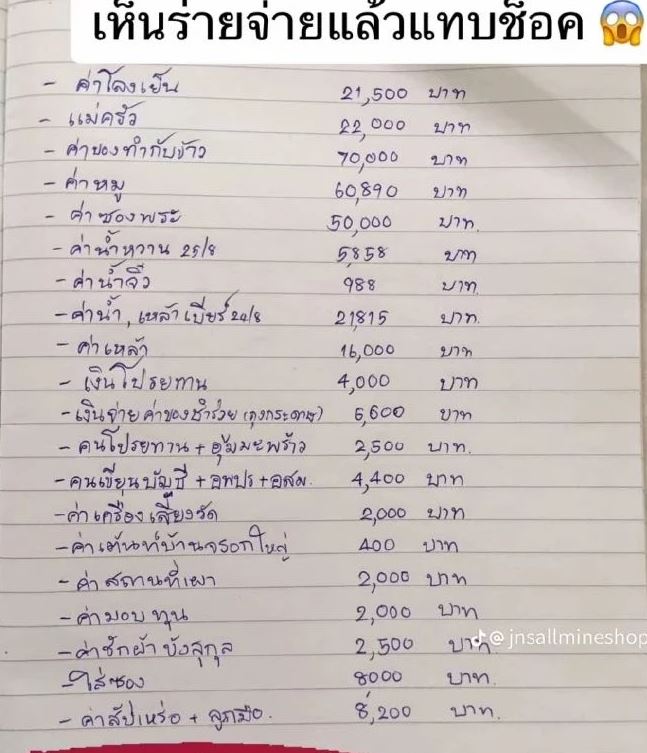 เห็นร่ายจ่ายแล้วแทบช็อค 😱
- ค่าโลงเย็น 21,500 บาท
- แม่ครัว 22,000 บาท
- ค่าของทำกับข้าว 70,000 บาท
- ค่าหมู 60,890 บาท
- ค่าซองพระ 50,000 บาท.
- ค่าน้ำหวาน 25/8 5,858 บาท
- ค่าน้ำจิ้ว 988 บาท.
- ค่าน้ำ, เหล้า เบียร์ 24/8 21,815 บาท.
- ค่าเหล้า 16,000 บาท
- เงินโปรยทาน 4,000 บาท
- เงินจ่ายค่าของชำร่วย (ถุงกระดาษ) 6,600 บาท
- คนโปรยทาน + อุ้มมะพร้าว 2,500 บาท.
- คนเขียนบัญชี + อพปร + อสม. 4,400 บาท
- ค่าเครื่องเสียงวัด 2,000 บาท
- ค่าเต้นท์บ้านจรอกใหญ่ 400 บาท
- ค่าสถานที่เผา 2,000 บาท
- ค่ามอบทุน 2,000 บาท
- ค่าชักผ้าบังสุกุล 2,500 บาท.
@jnsallmineshop
- ใส่ซอง 8000 บาท.
- ค่าสัปเหร่อ + ลูกมือ. 8,200 บาท.